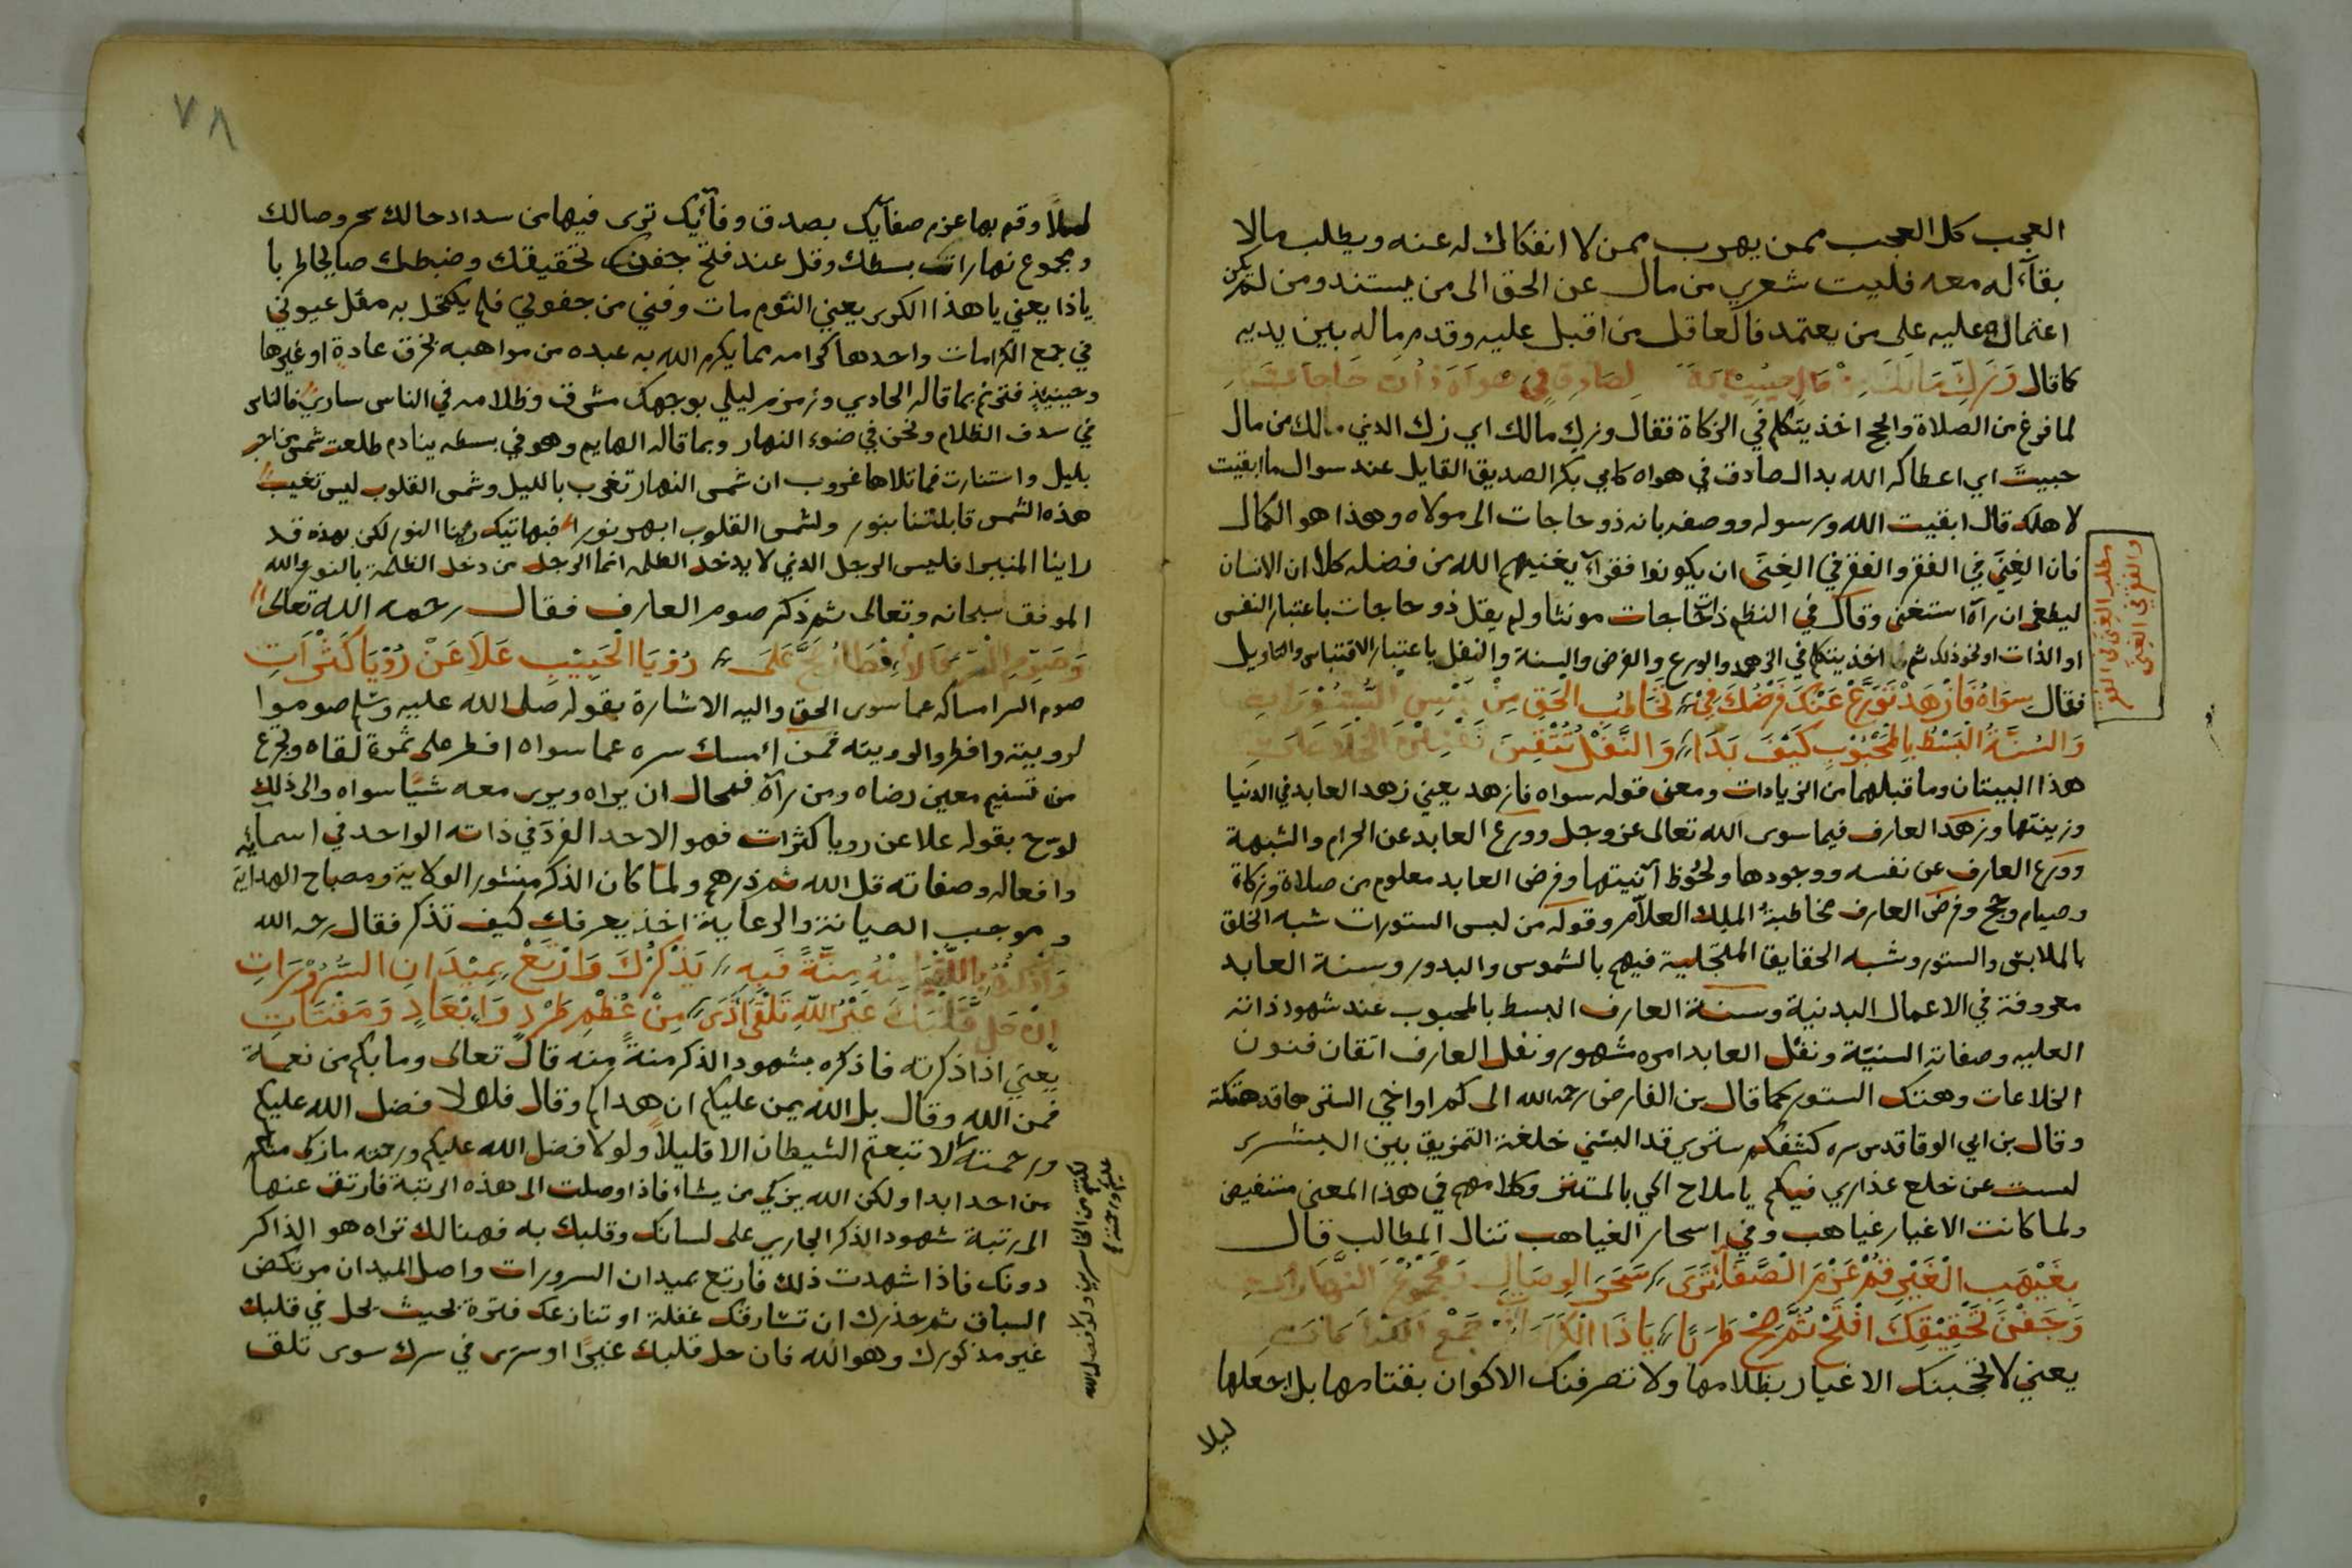 العجب كل العجب ممن يهرب ممن لا انفكاك له عنه ويطلب ما لا
بقآء له معه فليت شعري من مال عن الحق الى من يستند ومن لم يكن
اعتماله عليه على من يعتمد فالعاقل من اقبل عليه وقدم ماله بين يديه
كما قال وَزَكِّ مَالَكَ لِصَادِقٍ فِي هَوَاهُ ذُو حَاجَاتِ
لما فرغ من الصلاة والحج اخذ يتكلم في الزكاة فقال وزك مالك اي زك الذي مالك من مال
حبيت اي اعطاكه الله بدا لصادق في هواه كابي بكر الصديق القايل عند سوال ما ابقيت
لاهلك قال ابقيت الله ورسوله ووصفه بانه ذو حاجات الى مولاه وهذا هو الكمال
فان الغِنَى في الفقر والفقر في الغِنَى ان يكونوا فقرآء يغنيهم الله من فضله كلا ان الانسان
ليطغى ان رآه استغنى وقال في النظم ذات حاجات مونثا ولم يقل ذو حاجات باعتبار النفس
او الذات او نحو ذلك ثم اخذ يتكلم في الزهد والورع والفرض والسنة والنفل باعتبار الاقتباس والتاويل
فقال سِوَاهُ فَازْهَدْ تَوَرَّعْ عَنْكَ فَرْضُكَ تُخَاطِب الحَقِّ مِنْ لُبْسِ السُّتُوْرَاتِ
وَالسُنَّةُ البَسْطُ بِالْمَحْبُوْبِ كَيْفَ بَدَا وَالنَّفْلُ تُتْقِنَ
هذا البيتان وما قبلهما من الزيادات ومعنى قوله سواه فازهد يعني زهد العابد في الدنيا
وزينتها وزهد العارف فيما سوى الله تعالى عز وجل وورع العابد عن الحرام والشبهة
وورع العارف عن نفسه ووجودها ولحُوظ آنيتها وفرض العابد معلوم من صلاة وزكاة
وصيام وحج وفرض العارف مخاطبة الملك العلام وقوله من لبس الستورات شبه الخلق
بالملابس والستور وشبه الحقايق المتجلية فيهم بالشموس والبدور وسنة العابد
معروفة في الاعمال البدنية وسنة العارف البسط بالمحبوب عند شهود ذاته
العليه وصفاته السنيّة ونفل العابد امره مشهور ونفل العارف اتقان فنون
الخلاعات وهتك الستور كما قال بن الفارض رحمه الله الى كم اواخي الستر ها قد هتكته
وقال بن ابي الوفا قدس سره كشفكم ستري قد البسني خلعة التمزيق بين البشر
لست عن خلع عذاري فيكم يا ملاح الحي بالمستتر وكلامهم في هذا المعنى مستفيض
ولما كانت الاغيار غياهب وفي اسحار الغياهب تنال المطالب قال
بِغَيْهَبِ الْغَيْرِ قُمْ عَزْمَ الصَّفَا تَرَى سَحَرَ الوِصَالِ وَمَجْمُوْعَ النَّهَارَاتِ
وَجَفْنَ تَحْقِيْقِكَ افْتَحْ ثُمَّ صِحْ طَرَبًا يَا ذَا الْكَرَى جَمْعِ الكَرَامَاتِ
يعني لا تحجبنك الاغيار بظلامها ولا تصرفنك الاكوان بقتامها بل اجعلها
ليلا
مطلب الغنى في الفقر
والفقر في الغنى
٧٨
ليلاً وقم بها عزم صفآيك بصدق وفآئيك ترى فيها من سداد حالك سحر وصالك
ومجموع نهارات بسطك وقل عند فتح جفن تحقيقك وضبطك صايحا طربا
ياذا يعني يا هذا الكرى يعني النوم مات وفني من جفوني فلم يكتحل به مقل عيوني
في جمع الكرامات واحدها كرامه مما يكرم الله به عبده من مواهبه بخرق عادة او غيرها
وحينيذ فترنم بما قاله الحادي وزمزم ليلي بوجهك مشرق وظلامه في الناس ساري فالناس
في سدف الظلام ونحن في ضوء النهار وبما قاله الهايم وهو في بسطه ينادم طلعت شمس من احب
بليل واستنارت فما تلاها غروب ان شمس النهار تغرب بالليل وشمس القلوب ليس تغيب
هذه الشمس قابلتنا بنور ولشمس القلوب ابهر نورا فبهاتيك راينا النور لكن بهذه قد
راينا المنيرا فليس الرجل الذي لا يدخل الظلمه انما الرجل من دخل الظلمة بالنور والله
الموفق سبحانه وتعالى ثم ذكر صوم العارف فقال رحمه الله تعالى
رُؤيَا الْحَبِيْبِ عَلَا عَنْ رُوْيَا كَثْرَاتِ
صوم السر امساكه عما سوى الحق واليه الاشارة بقوله صلى الله عليه وسلم صوموا
لرويته وافطروا لرويته فمن امسك سره عما سواه افطر على ثمرة لقاه وتجرع
من تسنيم معين رضاه ومن رآه فمحال ان يراه ويرى معه شيًا سواه والى ذلك
لوّح بقوله علا عن رويا كثرات فهو الاحد الفرد في ذاته الواحد في اسمائه
وافعاله وصفاته قل الله ثم ذرهم ولما كان الذكر منشور الولاية ومصباح الهداية
وموجب الصيانة والرعاية اخذ يعرفك كيف تذكر فقال رحمه الله
مِنْهُ مِنَّةً فَبِهِ يَذْكُرُكَ وَارْتَعْ بِمِيْدَانِ السُّرُوْرَاتِ
اِنْ حَلَّ قَلْبَكَ غَيْرُ اللهِ تَلْقَ اَذًى مِنْ عُظْمِ طَرْدٍ وَاِبْعَادٍ وَمَقْتَاتِ
يعني اذا ذكرته فاذكره بشهود الذكر منةً منه قال تعالى وما بكم من نعمة
فمن الله وقال بل الله يمن عليكم ان هداكم وقال فلولا فضل الله عليكم
ورحمته لاتبعتم الشيطان الا قليلاً ولولا فضل الله عليكم ورحمته ما زكى منكم
من احد ابدا ولكن الله يزكي من يشاء فاذا وصلت الى هذه الرتبة فارتق عنها
الى رتبة شهود الذكر الجاري على لسانك وقلبك به فهنالك تراه هو الذاكر
دونك فاذا شهدت ذلك فارتع بميدان السرورات واصل الميدان مركض
السباق ثم حذرك ان تسارقك غفلة او تنازعك فترة بحيث يحل في قلبك
غير مذكورك وهو الله فان حل قلبك غيرًا او سرى في سرك سوى تلق
عليكم ورحمته
لكنتم من الخاسرين ولولا فضل الله